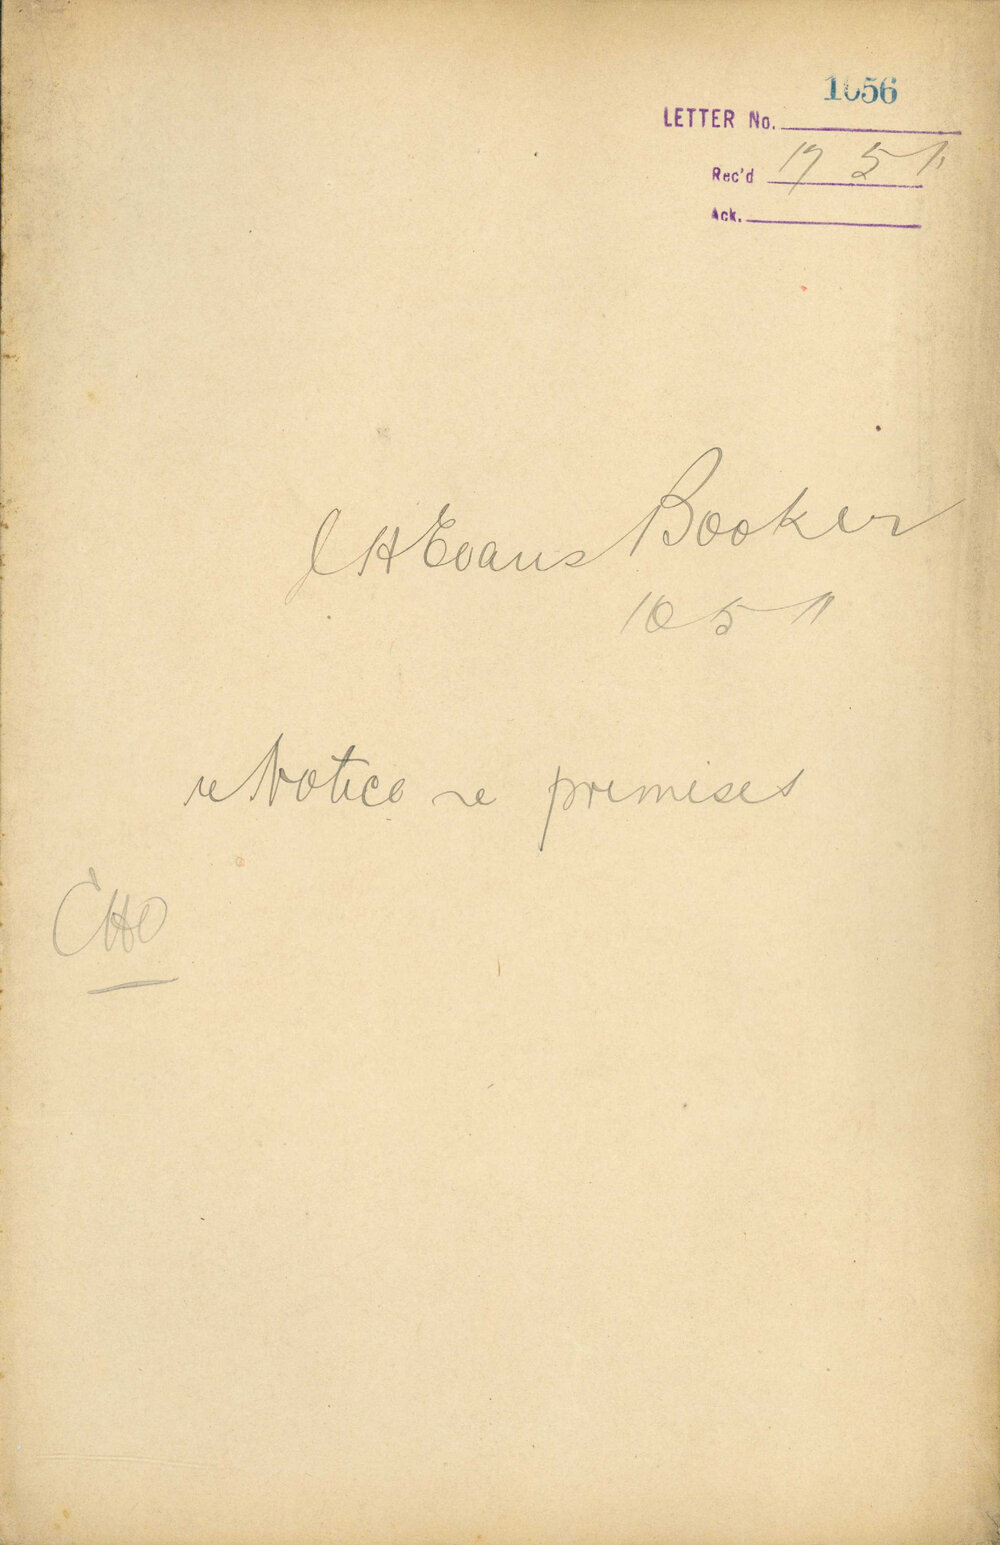 1056
LETTER No.
Rec'd 17 5 11
Ack.
J H Evans Booker
10 5 11
re Notice re premises
CHO